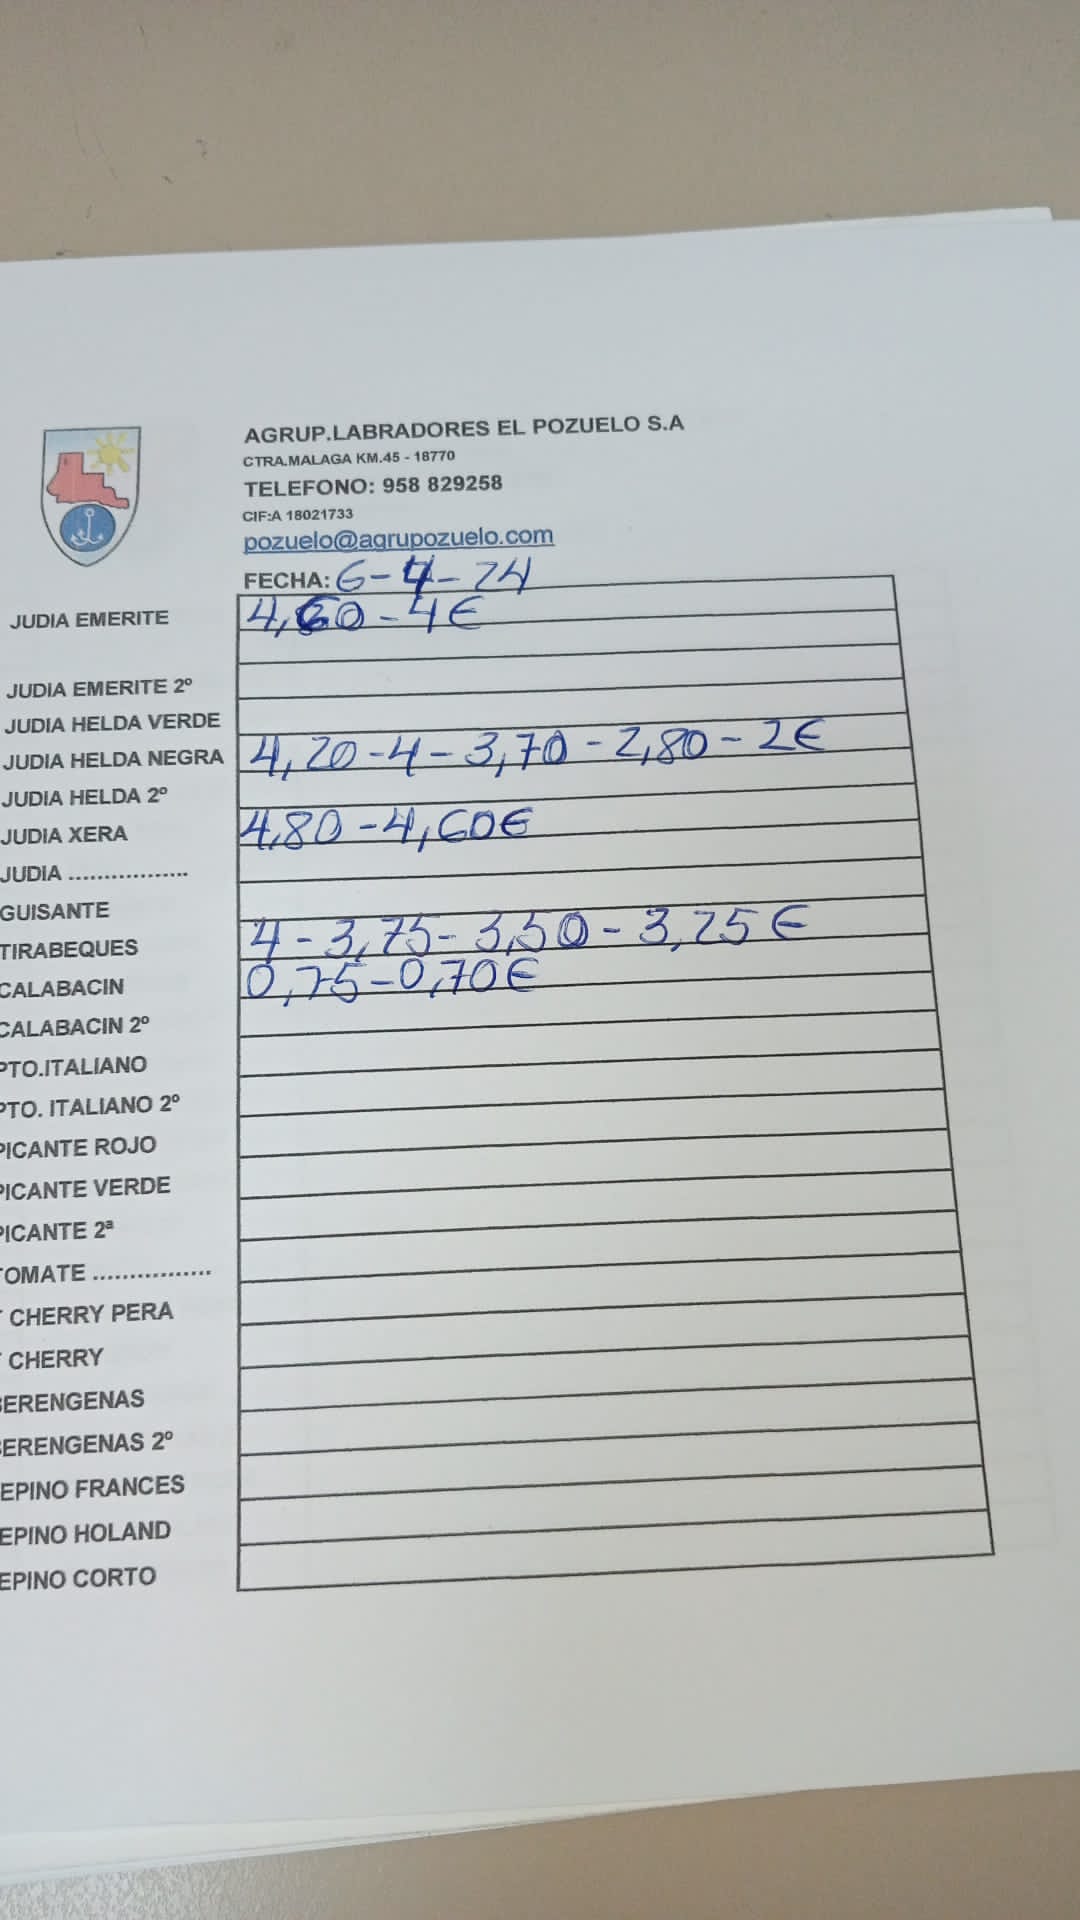 AGRUP.LABRADORES EL POZUELO S.A
CTRA.MALAGA KM.45 - 18770
TELEFONO: 958 829258
CIF:A 18021733
pozuelo@agrupozuelo.com
FECHA: 6-4-24
JUDIA EMERITE 4,60 - 4€
JUDIA EMERITE 2º
JUDIA HELDA VERDE
JUDIA HELDA NEGRA 4,20 - 4 - 3,70 - 2,80 - 2€
JUDIA HELDA 2º
JUDIA XERA 4,80 - 4,60€
JUDIA .................
GUISANTE
TIRABEQUES 4 - 3,75 - 3,50 - 3,25€
CALABACIN 0,75 - 0,70€
CALABACIN 2º
PTO.ITALIANO
PTO. ITALIANO 2º
PICANTE ROJO
PICANTE VERDE
PICANTE 2ª
TOMATE ................
T CHERRY PERA
T CHERRY
BERENGENAS
BERENGENAS 2º
EPINO FRANCES
EPINO HOLAND
EPINO CORTO